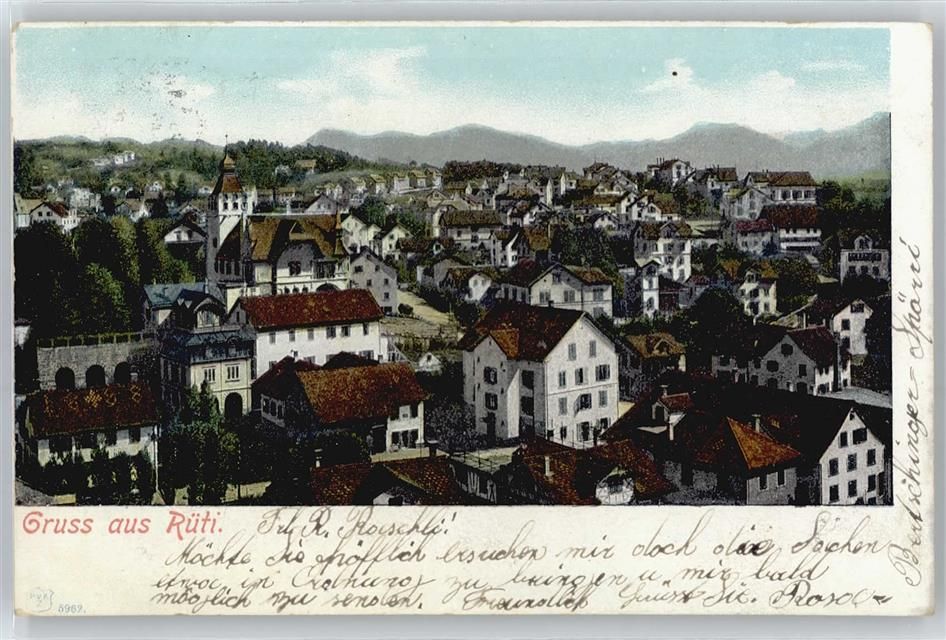 Gruss aus Rüti.
Frl. R. Roeschli!
Möchte Sie höfflich ersuchen mir doch die Sachen
etwas in Ordnung zu bringen u. mir bald
möglich zu senden. Freundlich Sie Rosa
Spörri
5962.